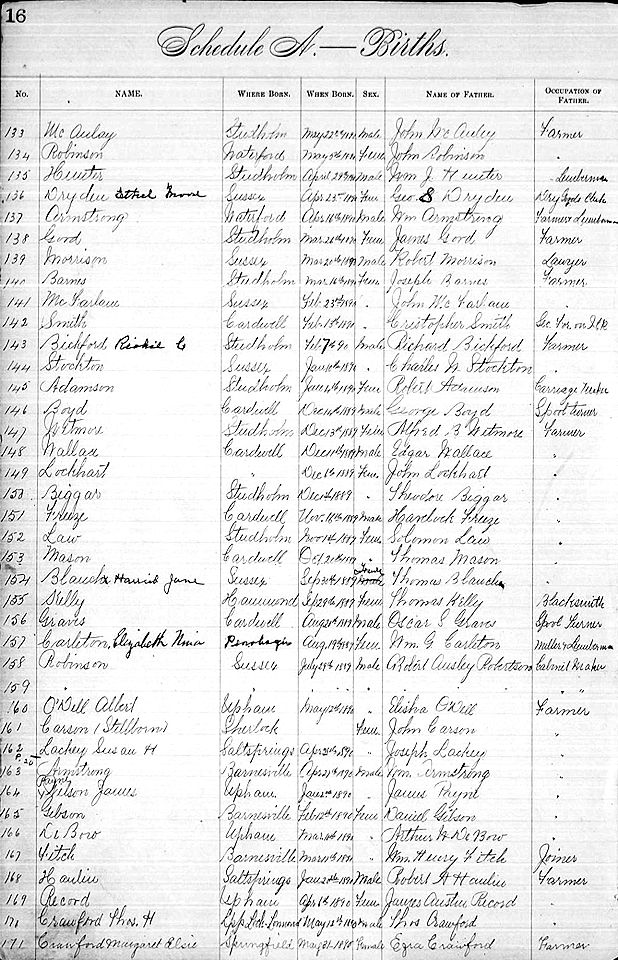 16
Schedule A.—Births.
No. NAME. WHERE BORN. WHEN BORN. SEX. NAME OF FATHER. OCCUPATION OF FATHER.
133 McAulay Studholm May 22nd 1890 Male John McAuley Farmer
134 Robinson Waterford May 5th 1890 Fem John Robinson "
135 Hunter Studholm April 29th 1890 Male Wm J Hunter " Lumberman
136 Dryden Ethel Sussex Apr 23rd 1890 Fem Geo S Dryden Dry Goods Clerk
137 Armstrong Waterford Apr 18th 1890 Male Wm Armstrong Farmer & Lumberman
138 Good Studholm Mar 26th 1890 Fem James Good Farmer
139 Morrison Sussex Mar 20th 1890 Male Robert Morrison Lawyer
140 Barnes Studholm Mar 16th 1890 Fem Joseph Barnes Farmer
141 McFarlane Sussex Feb 23rd 1890 " John McFarlane "
142 Smith Cardwell Feb 1st 1890 " Cristopher Smith Sec For on I.C.R
143 Bickford Studholm Feb 7th 90 Male Richard Bickford Farmer
144 Stockton Sussex Jan 10th 1890 " Charles W Stockton "
145 Adamson Studholm Jan 4th 1890 Fem Robert Adamson Carriage
146 Boyd Cardwell Dec 14th 1889 Male George Boyd Spool turner
147 Wetmore Studholm Dec 13th 1889 Fem Alfred B Wetmore Farmer
148 Wallace Cardwell Dec 11th 1889 Male Edgar Wallace "
149 Lockhart " Dec 1st 1889 Fem John Lockhart "
150 Biggar Studholm Dec 1889 " Theodore Biggar "
151 Freeze Cardwell Nov 18th 1889 Male Havelock Freeze "
152 Law Studholm Nov 1st 1889 Fem Solomon Law "
153 Mason Cardwell Oct 20th 1889 " Thomas Mason "
154 Blanch Harriet Jane Sussex Sep 30th 1889 Female Thomas Blanch "
155 Kelly Hammond Sep 29th 1889 Fem Thomas Kelly Blacksmith
156 Graves Cardwell Aug 25th 1889 Male Oscar S Graves Spool Turner
157 Carleton, Elizabeth Nina Penobsquis Aug 19th 1889 Fem Wm G Carleton Miller & Lumberman
158 Robinson Sussex July 29th 1889 Male Robert Ausley Robertson Cabinet Maker
159 " " " " " "
160 O'Dell Albert Upham May 12th 1890 " Elisha O'Dell Farmer
161 Carson (Stillborn) Sherlock Fem John Carson "
162 Lackey Susan H Saltsprings Apr 28th 1890 " Joseph Lackey "
P. 20
163 Armstrong Barnesville Apr 27th 1890 Male Wm Armstrong "
Payne
164 Wilson James Upham Jan 2nd 1890 " James Payne "
165 Gibson Barnesville Feb 12th 1890 Fem Daniel Gibson "
166 DeBow Upham Mar 10th 1890 " Arthur W DeBow "
167 Fitch Barnesville Mar 11th 1890 " Wm Henry Fitch Joiner
168 Saltsprings Jan 22nd 1890 Male Robert A Farmer
169 Record Upham Apr 6th 1890 Fem James Austin Record "
170 Crawford Thos. H May 18th 1890 Male Thos Crawford
171 Crawford Margaret Elsie Springfield May 31 1890 Female Ezra Crawford Farmer